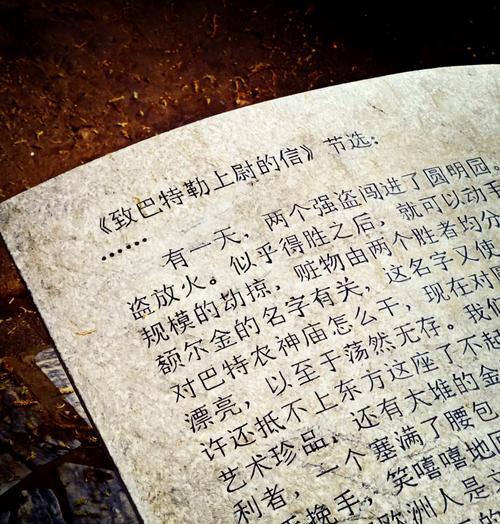 《致巴特勒上尉的信》节选：
……
有一天，两个强盗闯进了圆明园。
盗放火。似乎得胜之后，就可以动手
规模的劫掠，赃物由两个胜者均分
额尔金的名字有关，这名字又使
对巴特农神庙怎么干，现在对
漂亮，以至于荡然无存。我们
许还抵不上东方这座了不起
艺术珍品，还有大堆的金
利者，一个塞满了腰包
手挽手，笑嘻嘻地
欧洲人是